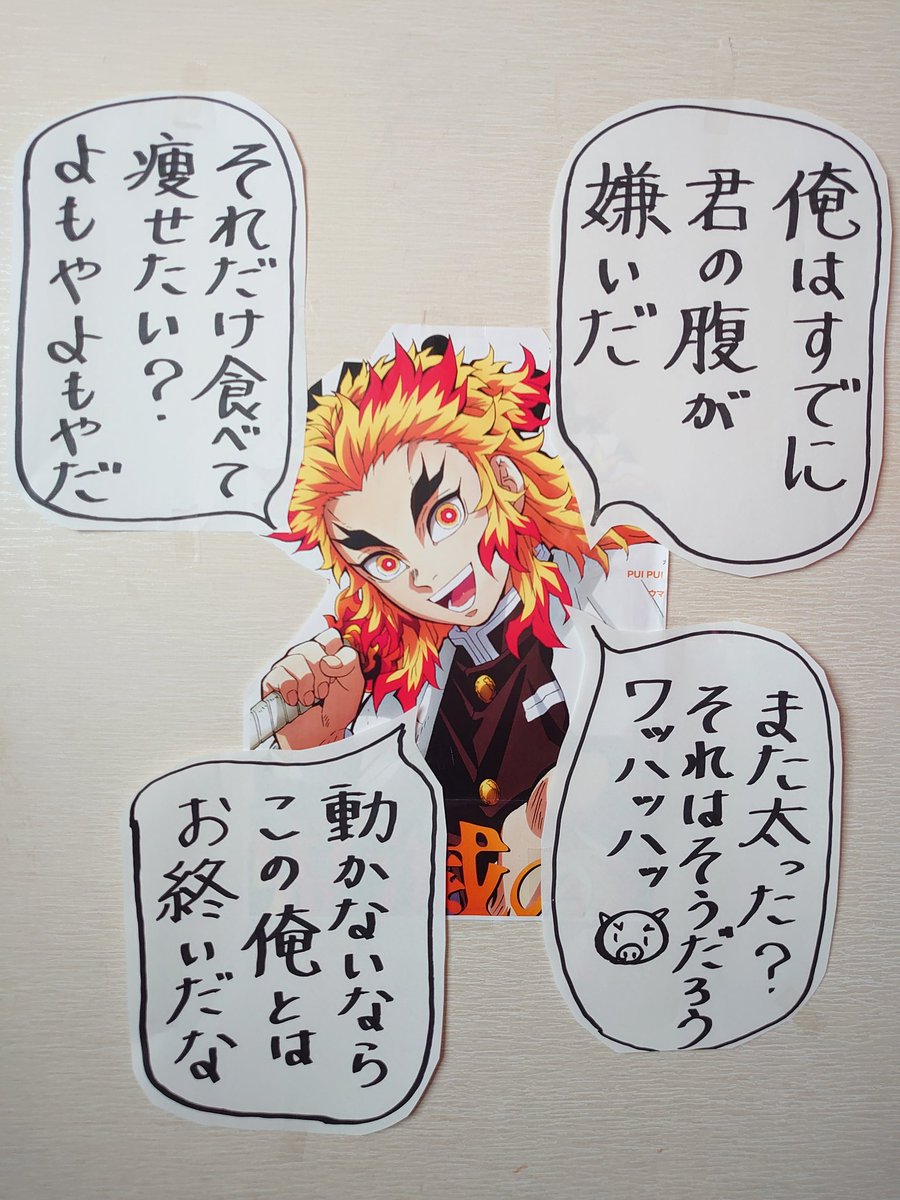 俺はすでに
君の腹が
嫌いだ
それだけ食べて
痩せたい？
よもやよもやだ
PUI PU!
ウマ
また太った？
それはそうだろう
ワッハッハッ
動かないなら
この俺とは
お終いだな
の